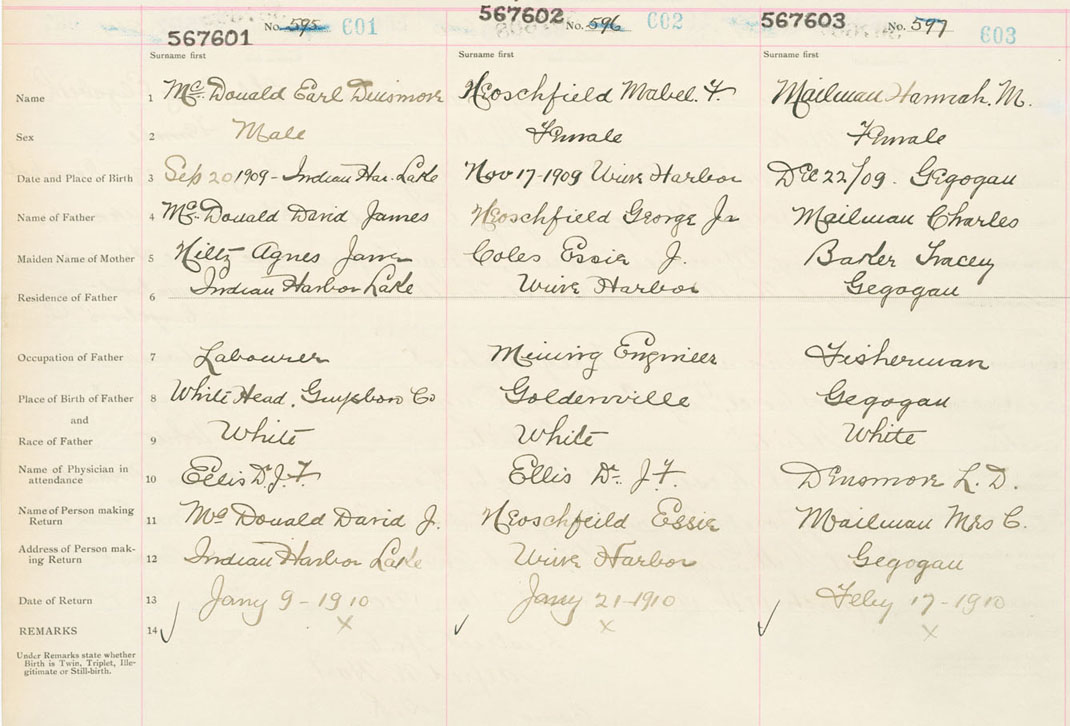 567601 No. 595 601
567602 No. 596 602
567603 No. 597 603
Surname first Surname first Surname first
Name 1 McDonald Earl Dinsmore Heoschfield Mabel. F. Mailman Hannah. M.
Sex 2 Male Female Female
Date and Place of Birth 3 Sep 20 1909 - Indian Har. Lake Nov 17-1909 Wine Harbor Dec 22/09. Gegogan
Name of Father 4 McDonald David James Heoschfield George Jr Mailman Charles
Maiden Name of Mother 5 Hiltz Agnes Jane Coles Essie J. Baker Tracey
Residence of Father 6 Indian Harbor Lake Wine Harbor Gegogan
Occupation of Father 7 Labourer Mining Engineer Fisherman
Place of Birth of Father 8 White Head, Guysboro Co Goldenville Gegogan
and
Race of Father 9 White White White
Name of Physician in
attendance 10 Ellis Dr. J. F. Ellis Dr. J. F. Densmore L. D.
Name of Person making
Return 11 McDonald David J. Heoschfeild Essie Mailman Mrs C.
Address of Person mak-
ing Return 12 Indian Harbor Lake Wine Harbor Gegogan
Date of Return 13 Jany 9 - 1910 Jany 21-1910 Feby 17-1910
REMARKS 14 x x x
Under Remarks state whether
Birth is Twin, Triplet, Ille-
gitimate or Still-birth.